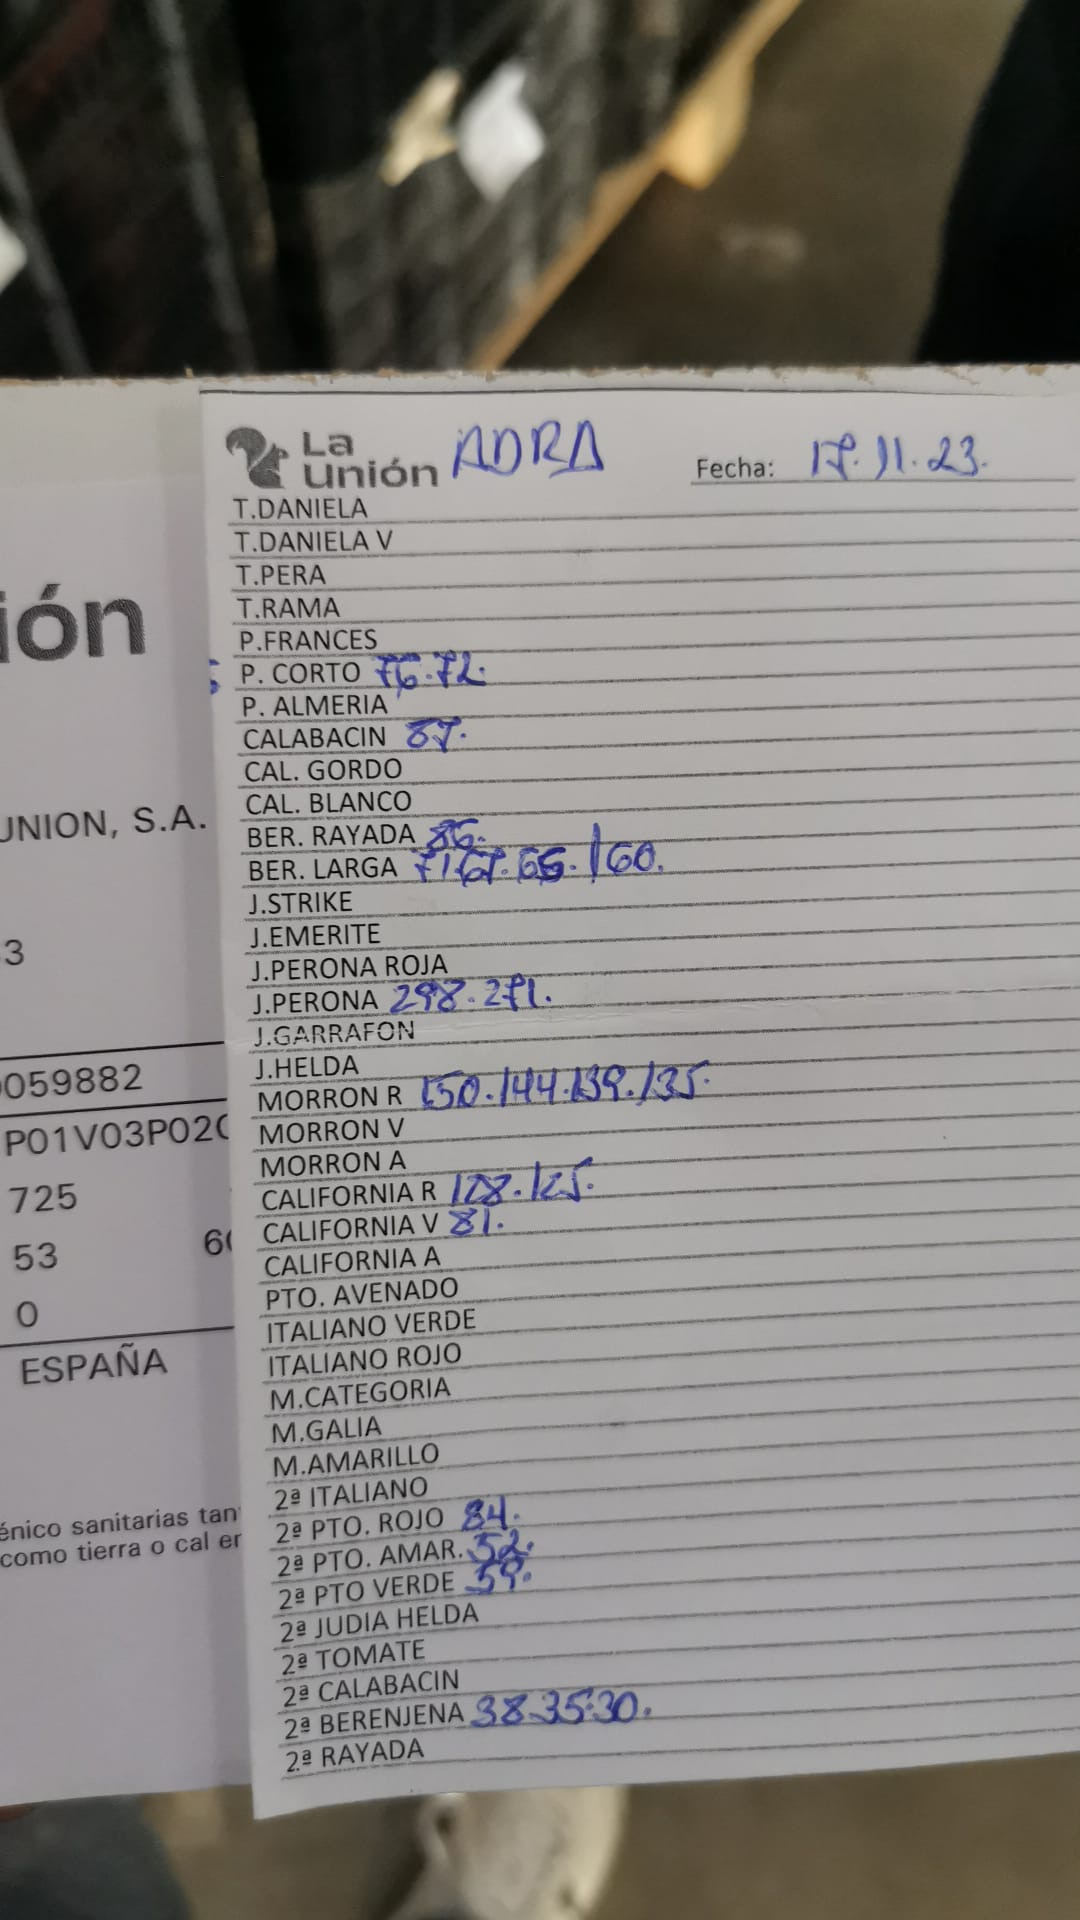 La Unión ADRA Fecha: 17.11.23.
T.DANIELA
T.DANIELA V
T.PERA
T.RAMA
P.FRANCES
P. CORTO 76.72.
P. ALMERIA
CALABACIN 87.
CAL. GORDO
CAL. BLANCO
BER. RAYADA 86.
BER. LARGA 71 67.65./60.
J.STRIKE
J.EMERITE
J.PERONA ROJA
J.PERONA 298.271.
J.GARRAFON
J.HELDA
MORRON R 150.144.139.135.
MORRON V
MORRON A
CALIFORNIA R 128.125.
CALIFORNIA V 81.
CALIFORNIA A
PTO. AVENADO
ITALIANO VERDE
ITALIANO ROJO
M.CATEGORIA
M.GALIA
M.AMARILLO
2ª ITALIANO
2ª PTO. ROJO 84.
2ª PTO. AMAR. 52.
2ª PTO VERDE 59.
2ª JUDIA HELDA
2ª TOMATE
2ª CALABACIN
2ª BERENJENA 38.35.30.
2.ª RAYADA
ión
UNION, S.A.
3
059882
P01V03P02
725
53 6
0
ESPAÑA
énico sanitarias tan
como tierra o cal en